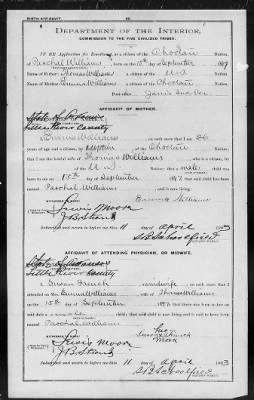 BIRTH AFFIDAVIT.
DEPARTMENT OF THE INTERIOR,
COMMISSION TO THE FIVE CIVILIZED TRIBES.
IN RE Application for Enrollment, as a citizen of the Choctaw Nation,
of Paschal Williams, born on the 15th day of September, 1897
Name of Father: Thomas Williams a citizen of the U.S. Nation.
Name of Mother: Emma Williams a citizen of the Choctaw Nation.
Post-office
AFFIDAVIT OF MOTHER.
State of Arkansas
Little River County
I, Emma Williams, on oath state that I am 26
years of age and a citizen by of the Choctaw Nation;
that I am the lawful wife of Thomas Williams, who is a citizen, by
of the U.S.; that a male child
was born to me on 15th day of September, 1897; that said child has been named
Paschal Williams, and is now living.
Emma Williams
Lewis Moon
Subscribed and sworn to before me this 11 day of April 1903
AFFIDAVIT OF ATTENDING PHYSICIAN, OR MIDWIFE.
State of Arkansas
Little River County
I, Susan French, a midwife, on oath state that I
attended on Mrs. Emma Williams, wife of Thomas Williams
on the 15th day of September, 1897; that there was born to her on said date a
male child; that said child is now living and is said to have been named
Paschal Williams
her
Susan x French
mark
Lewis Moon
Subscribed and sworn to before me this 11 day of April 1903